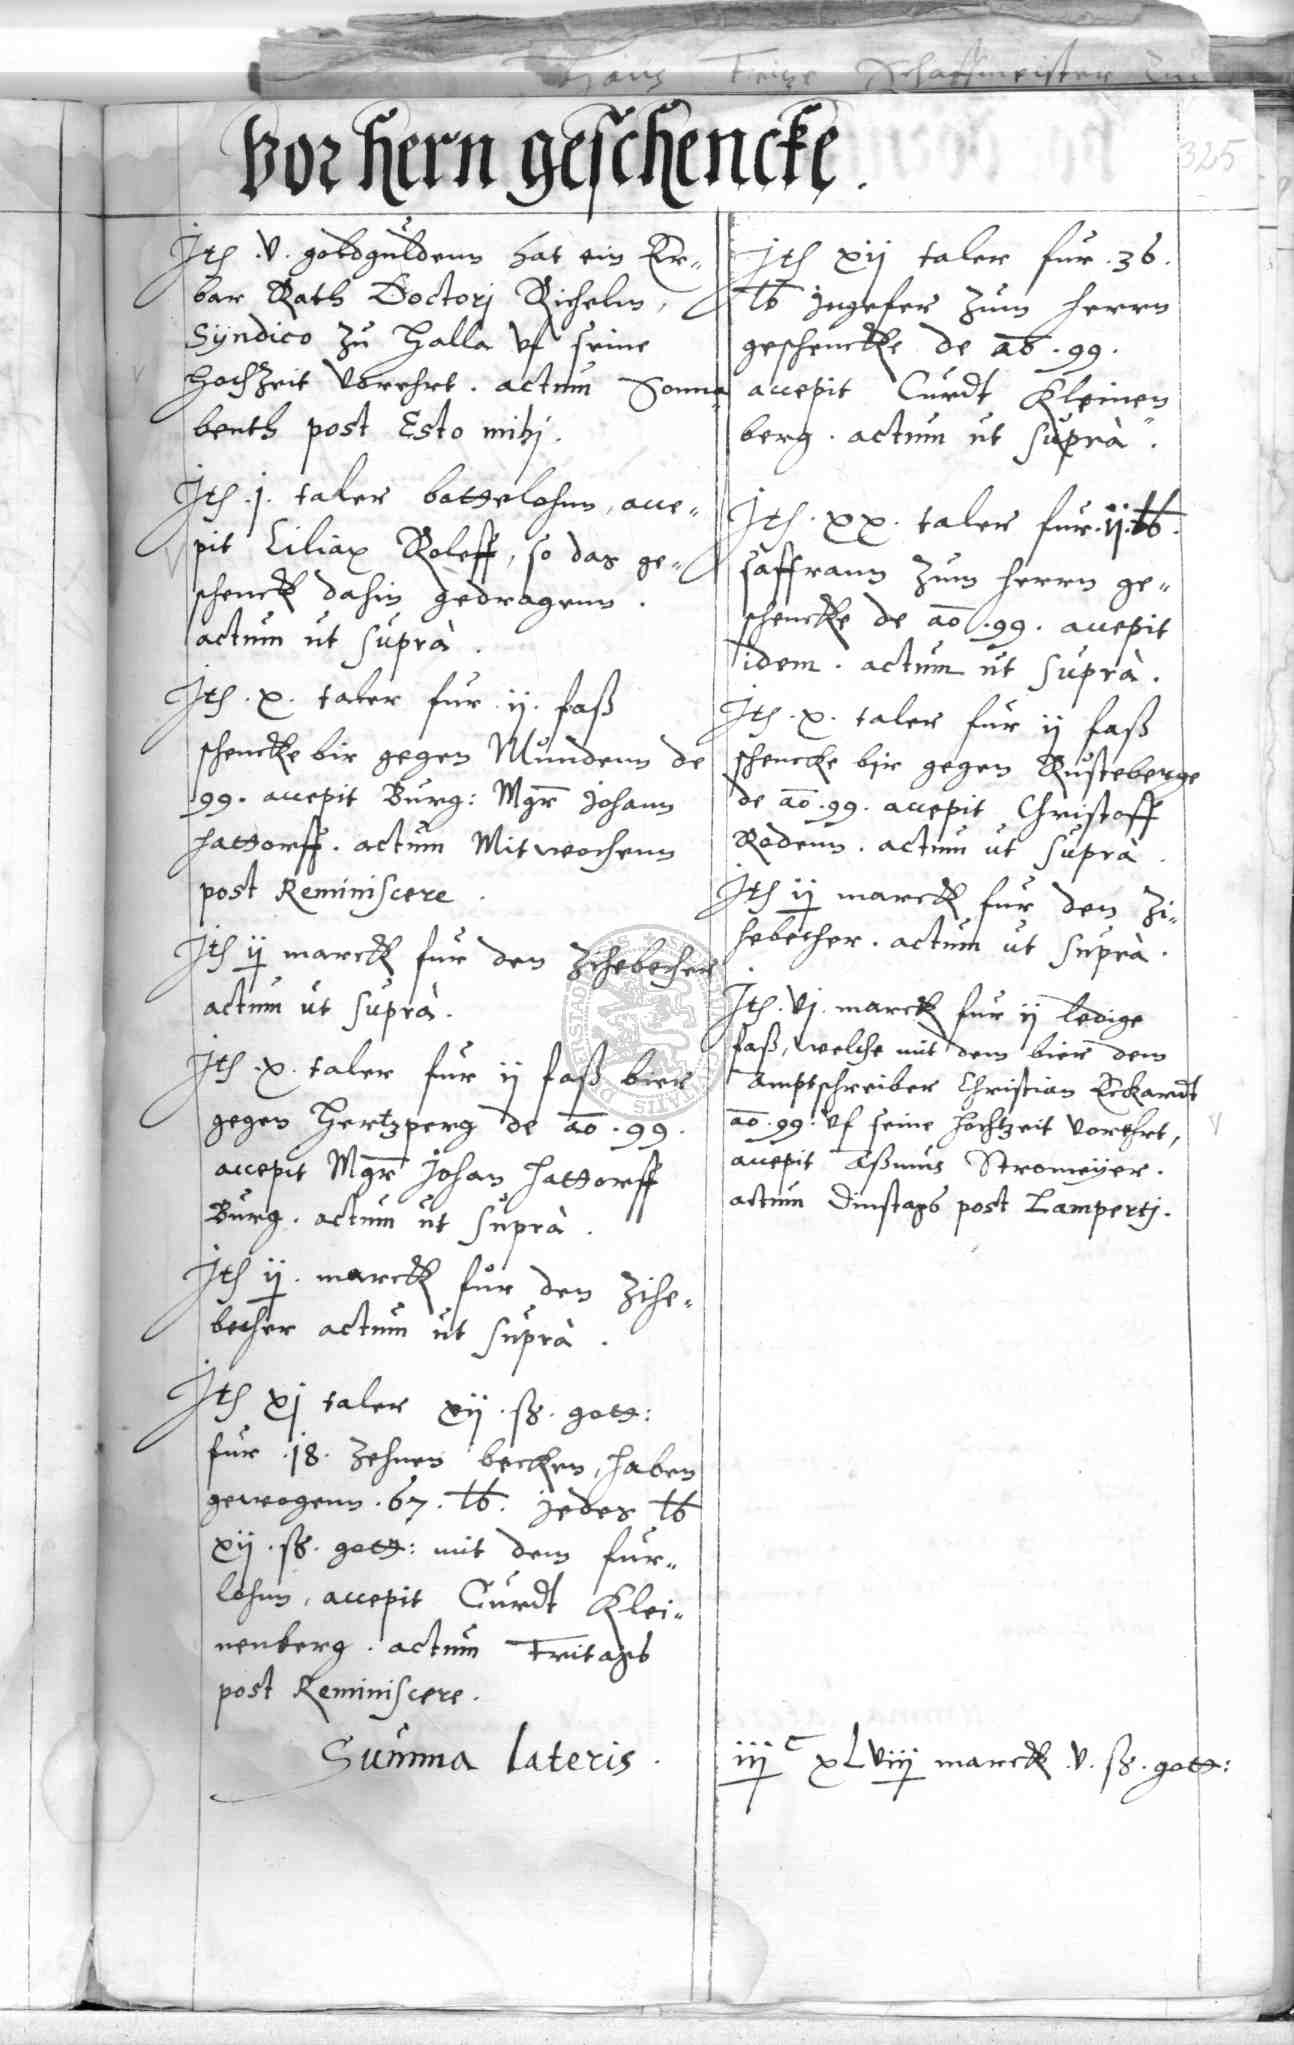 Hans Fritze Schaffmeister
Vor hern geschencke.
325
Itē .v. goldguldenn hat ein Er„
bar Rath Doctorj Richelm,
Syndico zu Halla vf seine
hochzeit vorehrt. actum Sonna„
benth post Esto mihj.
Itē .j. taler bottelohnn, acce„
pit Ciliax Roleff, so das ge„
schenck dahin gedragenn.
actum ut suprà.
Itē .x. taler fur .ij. faß
schencke bir gegen Mundenn de
99. accepit Burg: Mgr̄ Johann
Hattorff. actum Mitwochenn
post Reminiscere.
Itē ij marck fur den Zihebecher
actum ut suprà.
Itē .x. taler fur ij faß bier
gegen Hertzperg de ao .99.
accepit Mgr̄ Johan Hattorff
Burg. actum ut suprà.
Itē ij. marck fur den Zihe„
becher actum ut suprà.
Itē xj taler xij .ß. gott:
fur .18. Zehnen becken, haben
gewogenn .67. lb. jedes lb
xij .ß. gott: mit dem fur„
lohnn, accepit Curdt Klei„
nenberg. actum Fritags
post Reminiscere.
Summa lateris.
Itē xij taler fur .36.
lb Ingefer zum herrn
geschencke de ao .99.
accepit Curdt Kleinen„
berg. actum ut suprà.
Itē .xx. taler fur .ij. lb.
saffrann zum herrn ge„
schencke de ao .99. accepit
idem. actum ut suprà.
Itē .x. taler fur ij faß
schencke bir gegen Rusteberge
de ao .99. accepit Christoff
Rodenn. actum ut suprà.
Itē ij marck fur den Zi„
hebecher. actum ut suprà.
Itē .vj. marck fur ij ledige
faß, welche mit dem bier dem
Amptschreiber Christian Eckardt
ao .99. vf seine hochtzeit vorehrt,
accepit Aßmus Stromeyer.
actum Dinstags post Lampertj.
iijC xLviij marck .v. ß. gott: